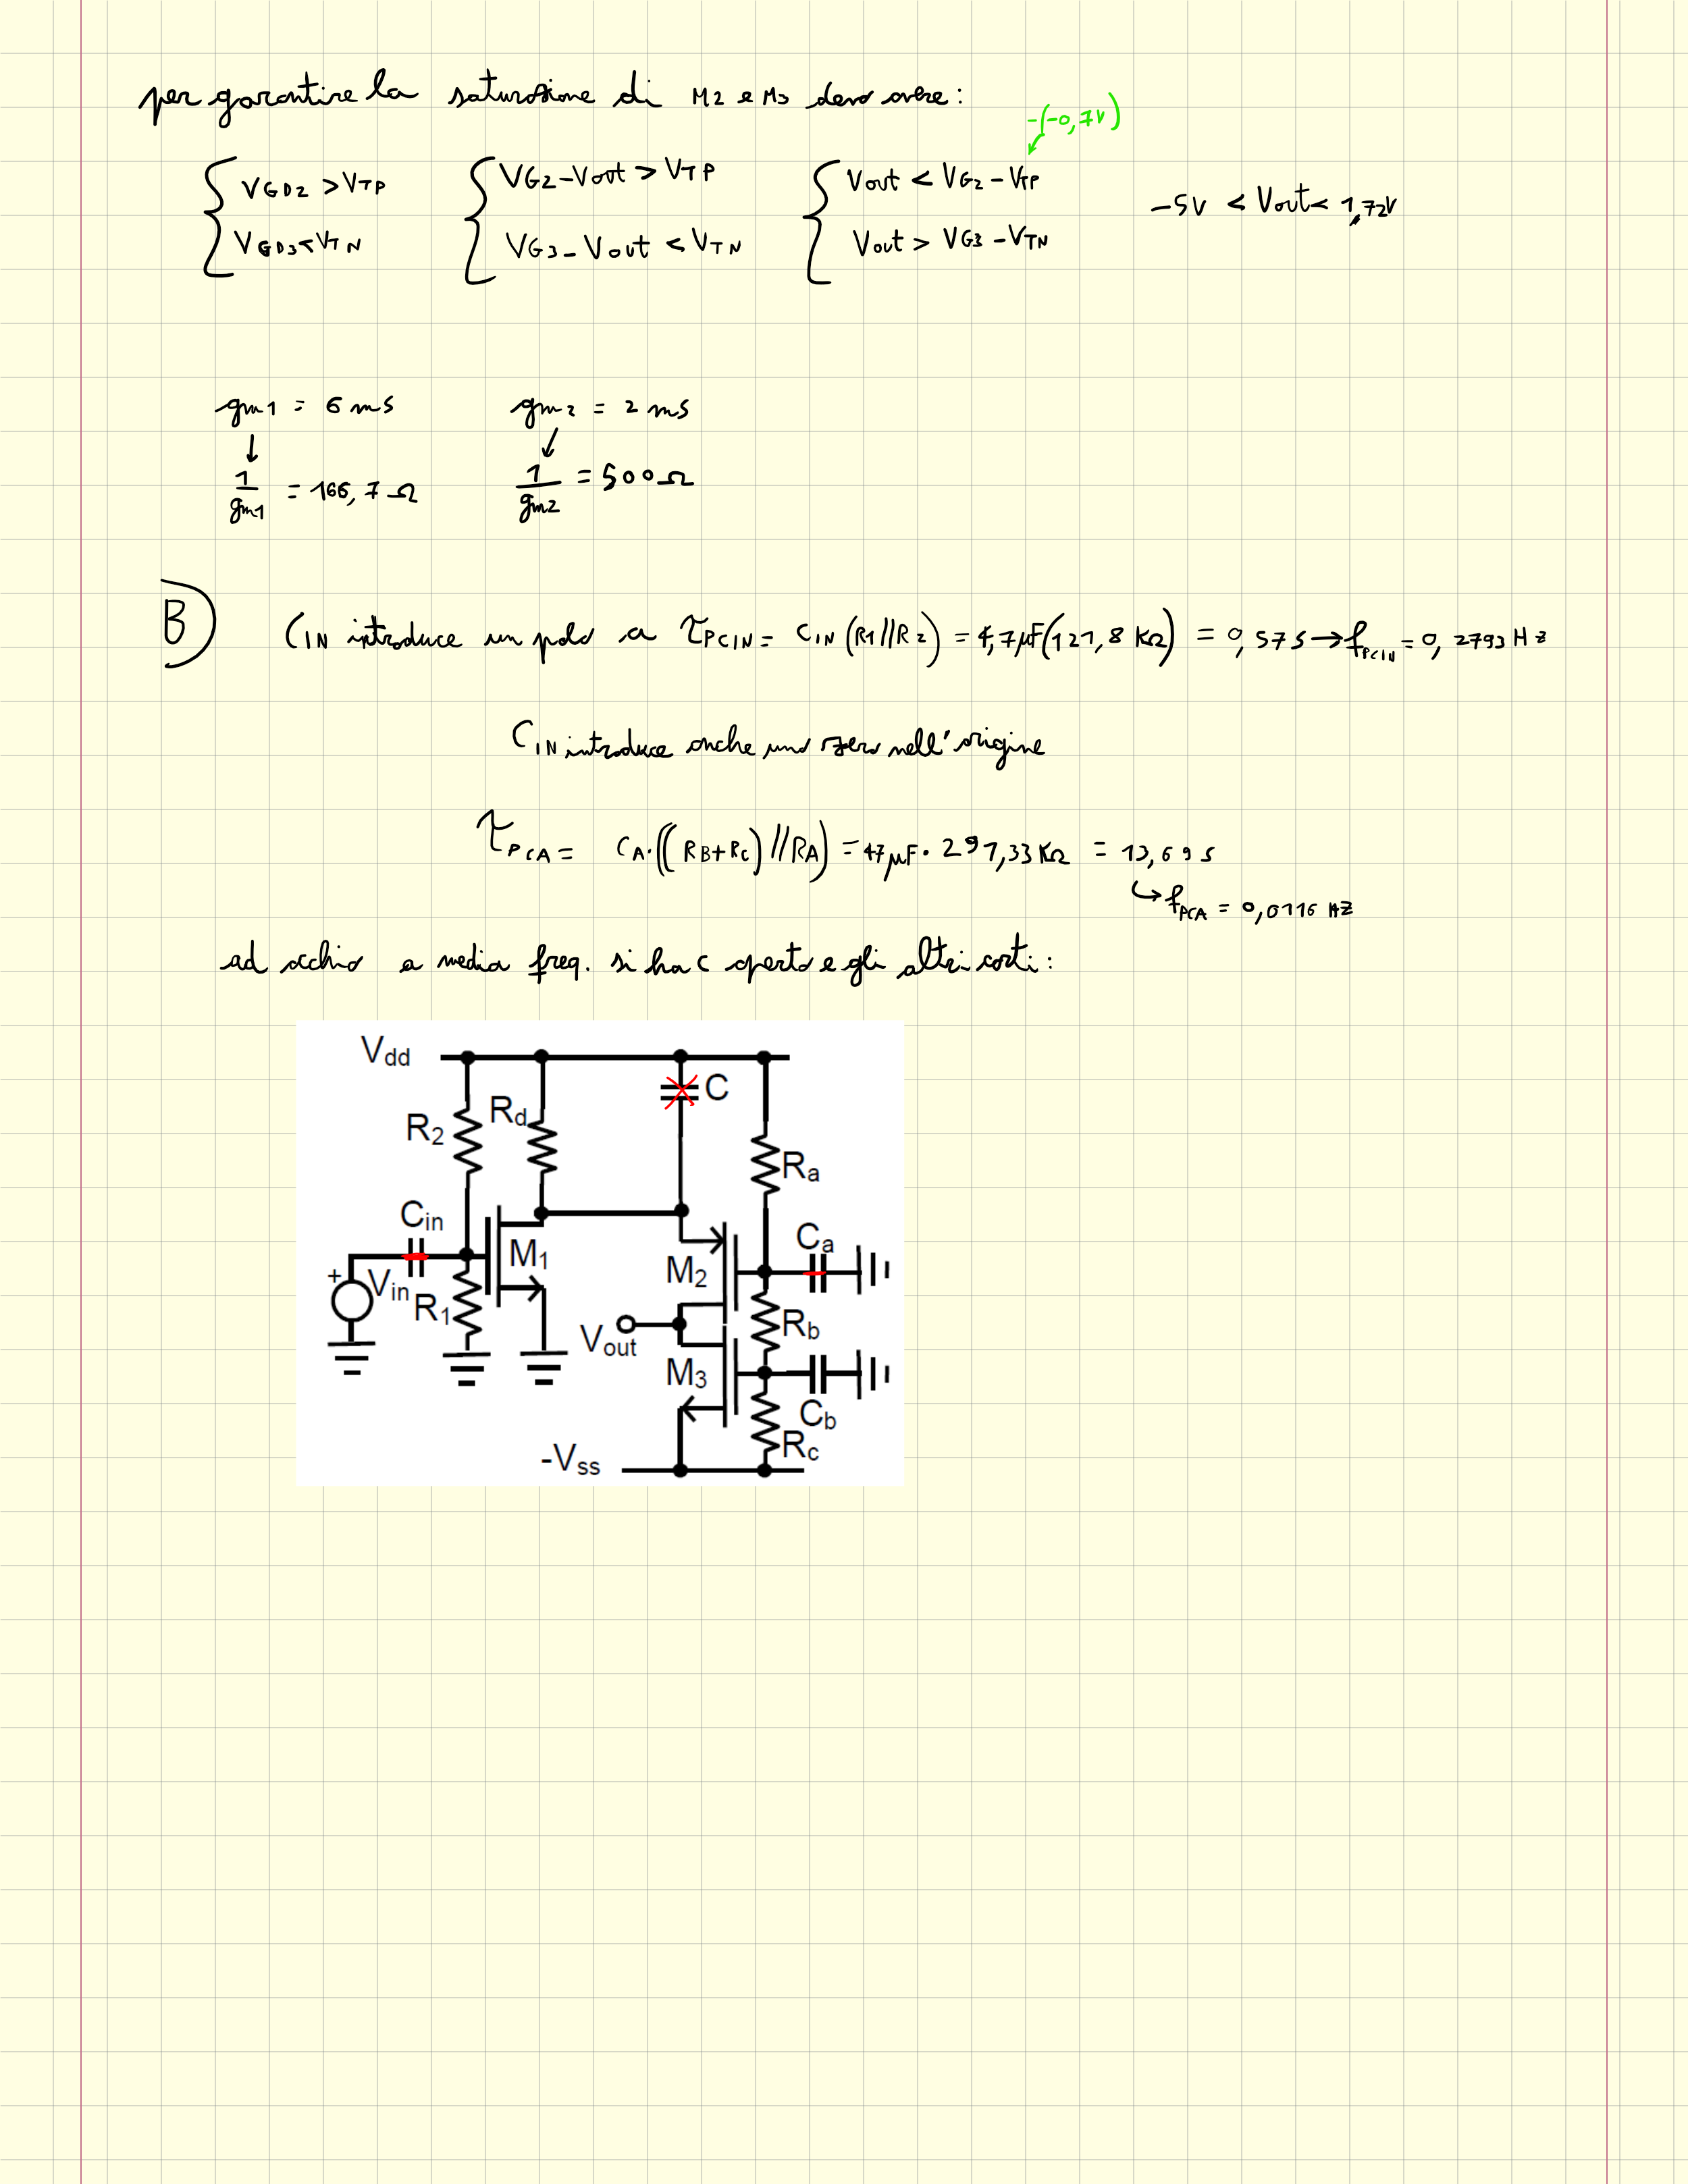 per garantire la saturazione di M2 e M3 devo avere:
-(-0,7V)
VGD2 > VTP
VGD3 < VTN
VG2 - Vout > VTP
VG3 - Vout < VTN
Vout < VG2 - VTP
Vout > VG3 - VTN
-5V < Vout < 1,72V
gm1 = 6 mS
gm2 = 2 mS
1/gm1 = 166,7 Ω
1/gm2 = 500 Ω
B) CIN introduce un polo a τPCIN = CIN (R1//R2) = 4,7μF(121,8 KΩ) = 0,57s → fPCIN = 0,2793 Hz
CIN introduce anche uno zero nell'origine
τPCA = CA·((RB+RC)//RA) = 47μF · 291,33 KΩ = 13,69 s
↳ fPCA = 0,0116 HZ
ad occhio a media freq. si ha C aperto e gli altri corti:
Vdd
C
R2
Rd
Ra
Cin
M1
Ca
+
Vin
M2
R1
Rb
Vout
M3
Cb
Rc
-Vss